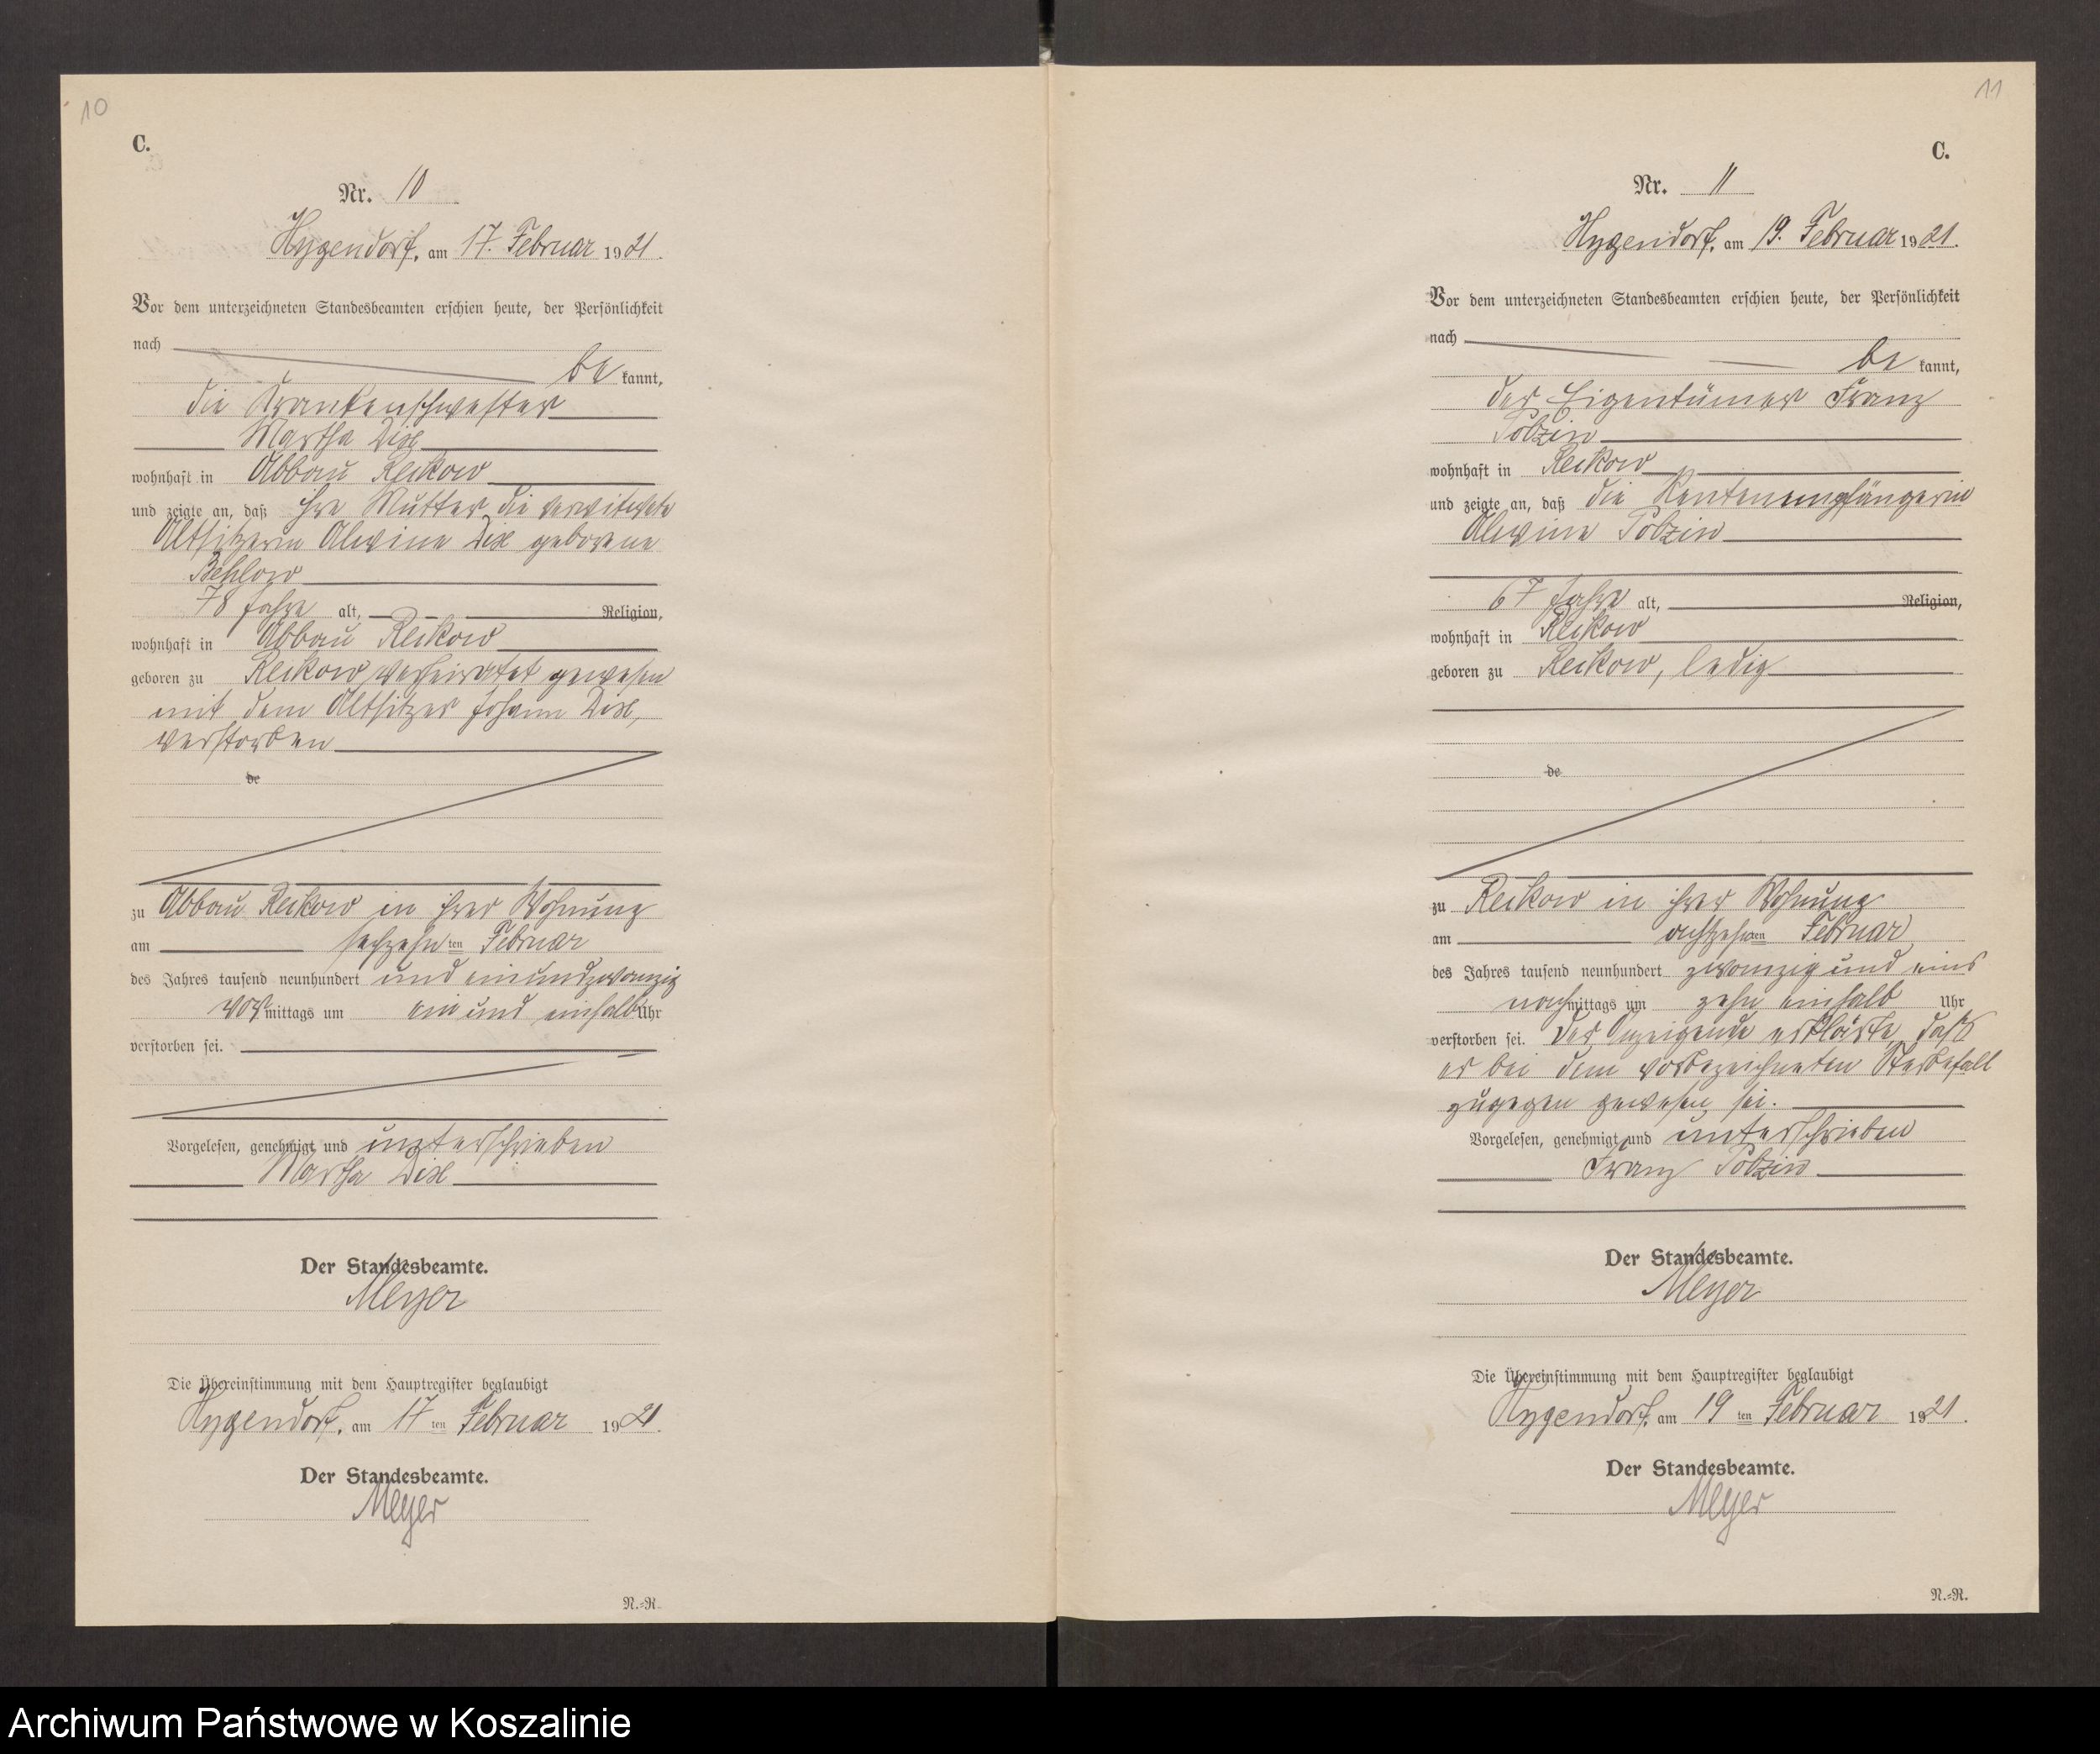 10
C.
Nr. 10
Hygendorf, am 17. Februar 1921.
Vor dem unterzeichneten Standesbeamten erschien heute, der Persönlichkeit
nach
be kannt,
die Krankenschwester
Martha
wohnhaft in Abbau Reikow
und zeigte an, daß ihre Mutter die verwitwete
Altsitzerin Alwine geborene
Behlow
78 Jahre alt, Religion,
wohnhaft in Abbau Reikow
geboren zu Reikow, verheiratet gewesen
mit dem Altsitzer Johann
verstorben
de
zu Abbau Reikow in ihrer Wohnung
am sechzehn ten Februar
des Jahres tausend neunhundert und einundzwanzig
vor mittags um ein und einhalb Uhr
verstorben sei.
Vorgelesen, genehmigt und unterschrieben
Martha
Der Standesbeamte.
Meyer
Die Übereinstimmung mit dem Hauptregister beglaubigt
Hygendorf, am 17 ten Februar 1921.
Der Standesbeamte.
Meyer
N.-R.
11
C.
Nr. 11
Hygendorf, am 19. Februar 1921.
Vor dem unterzeichneten Standesbeamten erschien heute, der Persönlichkeit
nach
be kannt,
der Eigentümer Franz
Polzin
wohnhaft in Reikow
und zeigte an, daß die Rentenempfängerin
Alwine Polzin
67 Jahre alt, Religion,
wohnhaft in Reikow
geboren zu Reikow, ledig
de
zu Reikow in ihrer Wohnung
am achtzehn ten Februar
des Jahres tausend neunhundert zwanzig und eins
nach mittags um zehn einhalb Uhr
verstorben sei. Der Anzeigende erklärte, daß
er bei dem vorbezeichneten Sterbefall
zugegen gewesen sei.
Vorgelesen, genehmigt und unterschrieben
Franz Polzin
Der Standesbeamte.
Meyer
Die Übereinstimmung mit dem Hauptregister beglaubigt
Hygendorf, am 19 ten Februar 1921.
Der Standesbeamte.
Meyer
N.-R.
Archiwum Państwowe w Koszalinie